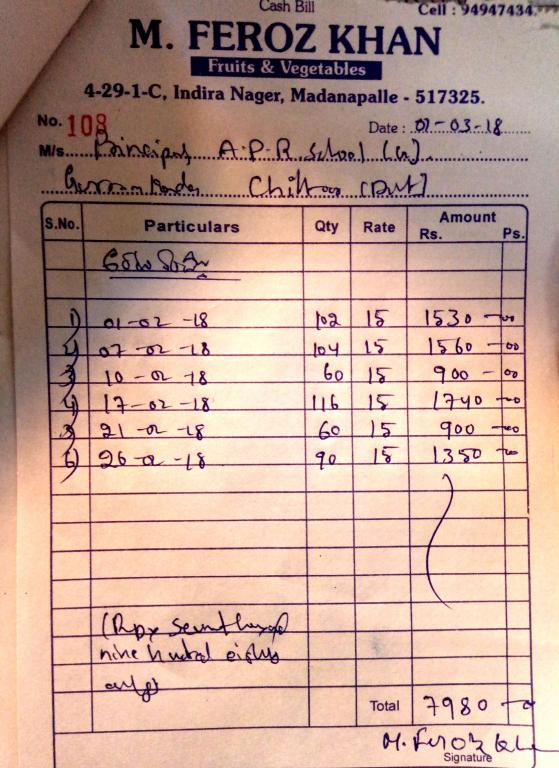 Cash Bill
Cell : 94947434
M. FEROZ KHAN
Fruits & Vegetables
4-29-1-C, Indira Nager, Madanapalle - 517325.
No. 108 Date : 01-03-18
M/s. Principal A.P.R. School (G).
Chittoor (Dist)
S.No. Particulars Qty Rate Amount
Rs. Ps.
1) 01-02-18 102 15 1530-00
2) 07-02-18 104 15 1560-00
3) 10-02-18 60 15 900-00
4) 17-02-18 116 15 1740-00
5) 21-02-18 60 15 900-00
6) 26-02-18 90 15 1350-00
seven thousand
nine hundred eighty
only)
Total 7980-00
M. Feroz Khan
Signature